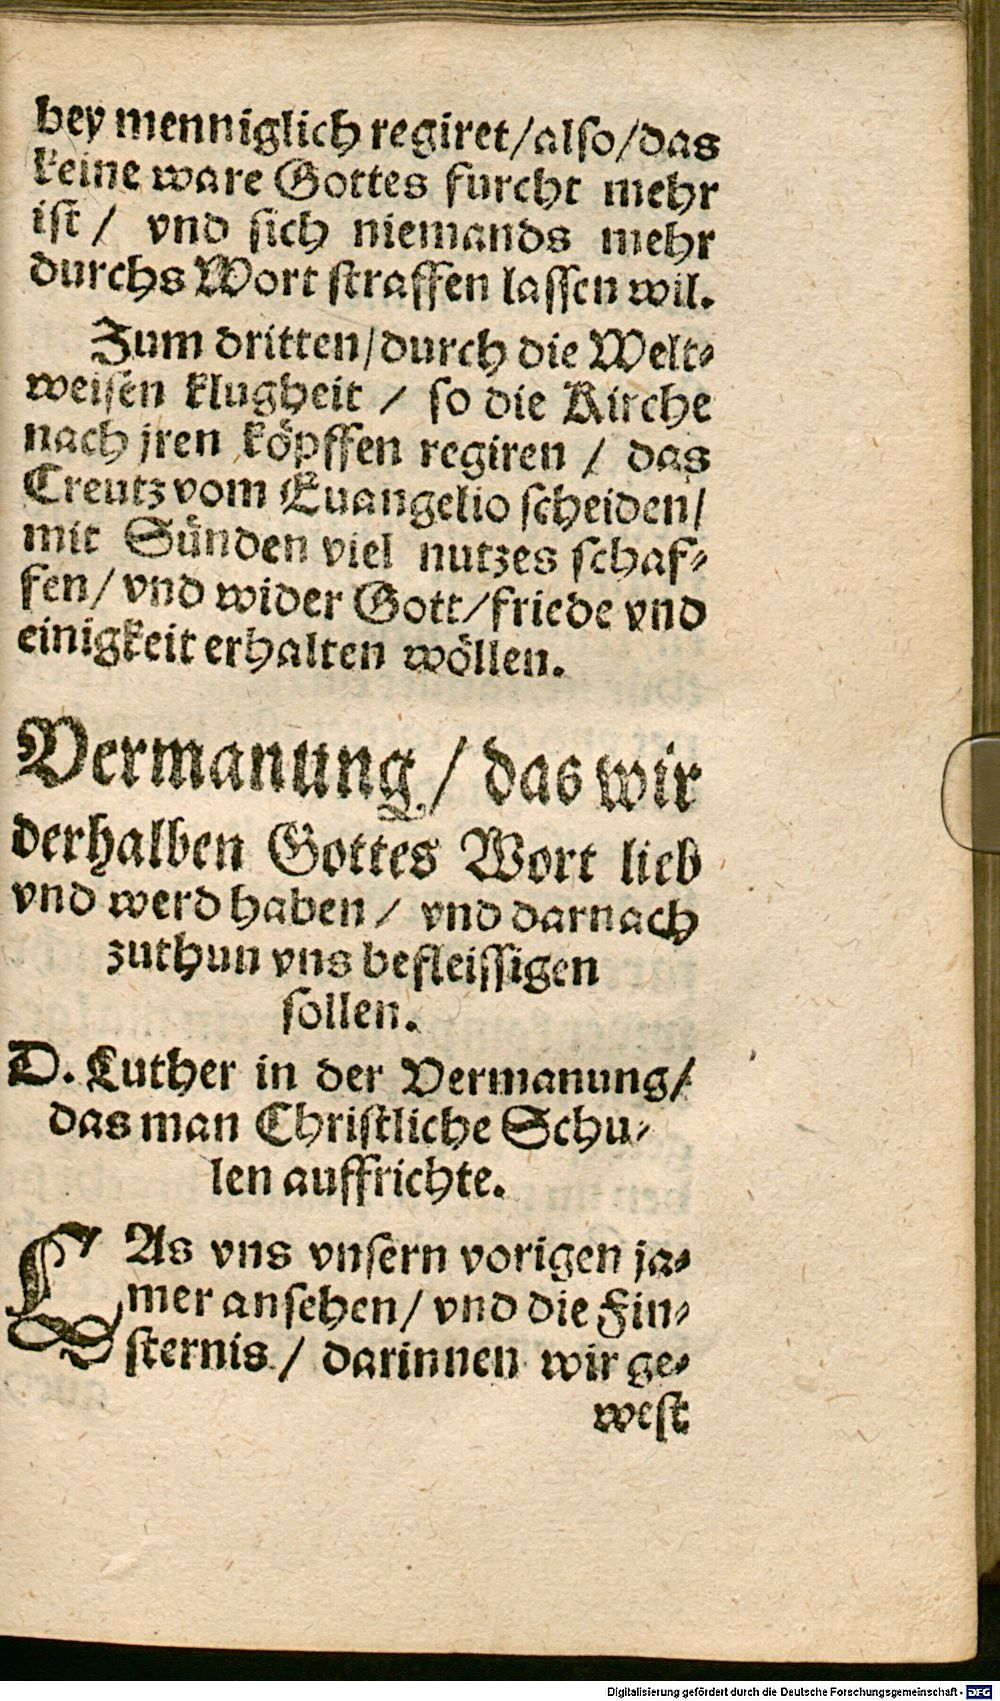 bey menniglich regiret/also/das
keine ware Gottes furcht mehr
ist / vnd sich niemands mehr
durchs Wort straffen lassen wil.
Zum dritten/durch die Welt-
weisen klugheit / so die Kirche
nach jren köpffen regiren / das
Creutz vom Euangelio scheiden/
mit Sünden viel nutzes schaf-
fen/ vnd wider Gott/friede vnd
einigkeit erhalten wöllen.
Vermanung / das wir
derhalben Gottes Wort lieb
vnd werd haben / vnd darnach
zuthun vns befleissigen
sollen.
D. Luther in der Vermanung/
das man Christliche Schu-
len auffrichte.
LAs vns vnsern vorigen ja-
mer ansehen/ vnd die Fin-
sternis / darinnen wir ge-
west
Digitalisierung gefördert durch die Deutsche Forschungsgemeinschaft - DFG